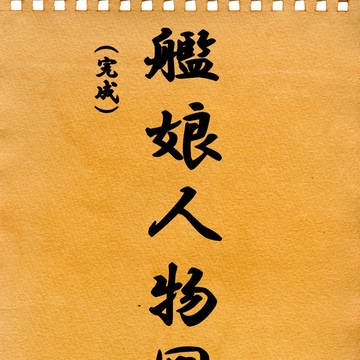 艦娘人物
(完成)